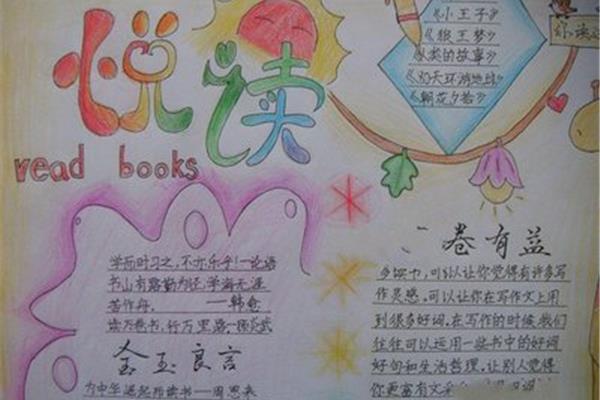 悦读
read books
《小王子》
《狼王梦》
类的故事》
天环游地球》
《朝花夕拾》
学而时习之,不亦乐乎!—论语
书山有路勤为径,学海无涯
苦作舟。 ——韩愈
读万卷书,行万里路—
金玉良言
为中华崛起而读书——周恩来
卷有益
多读书,可以让你觉得有许多写
作灵感。可以让你在写作文上用
到很多好词。在写作的时候,我们
往往可以运用一些书中的好词
好句和生活哲理。让别人觉得
你更富有文采